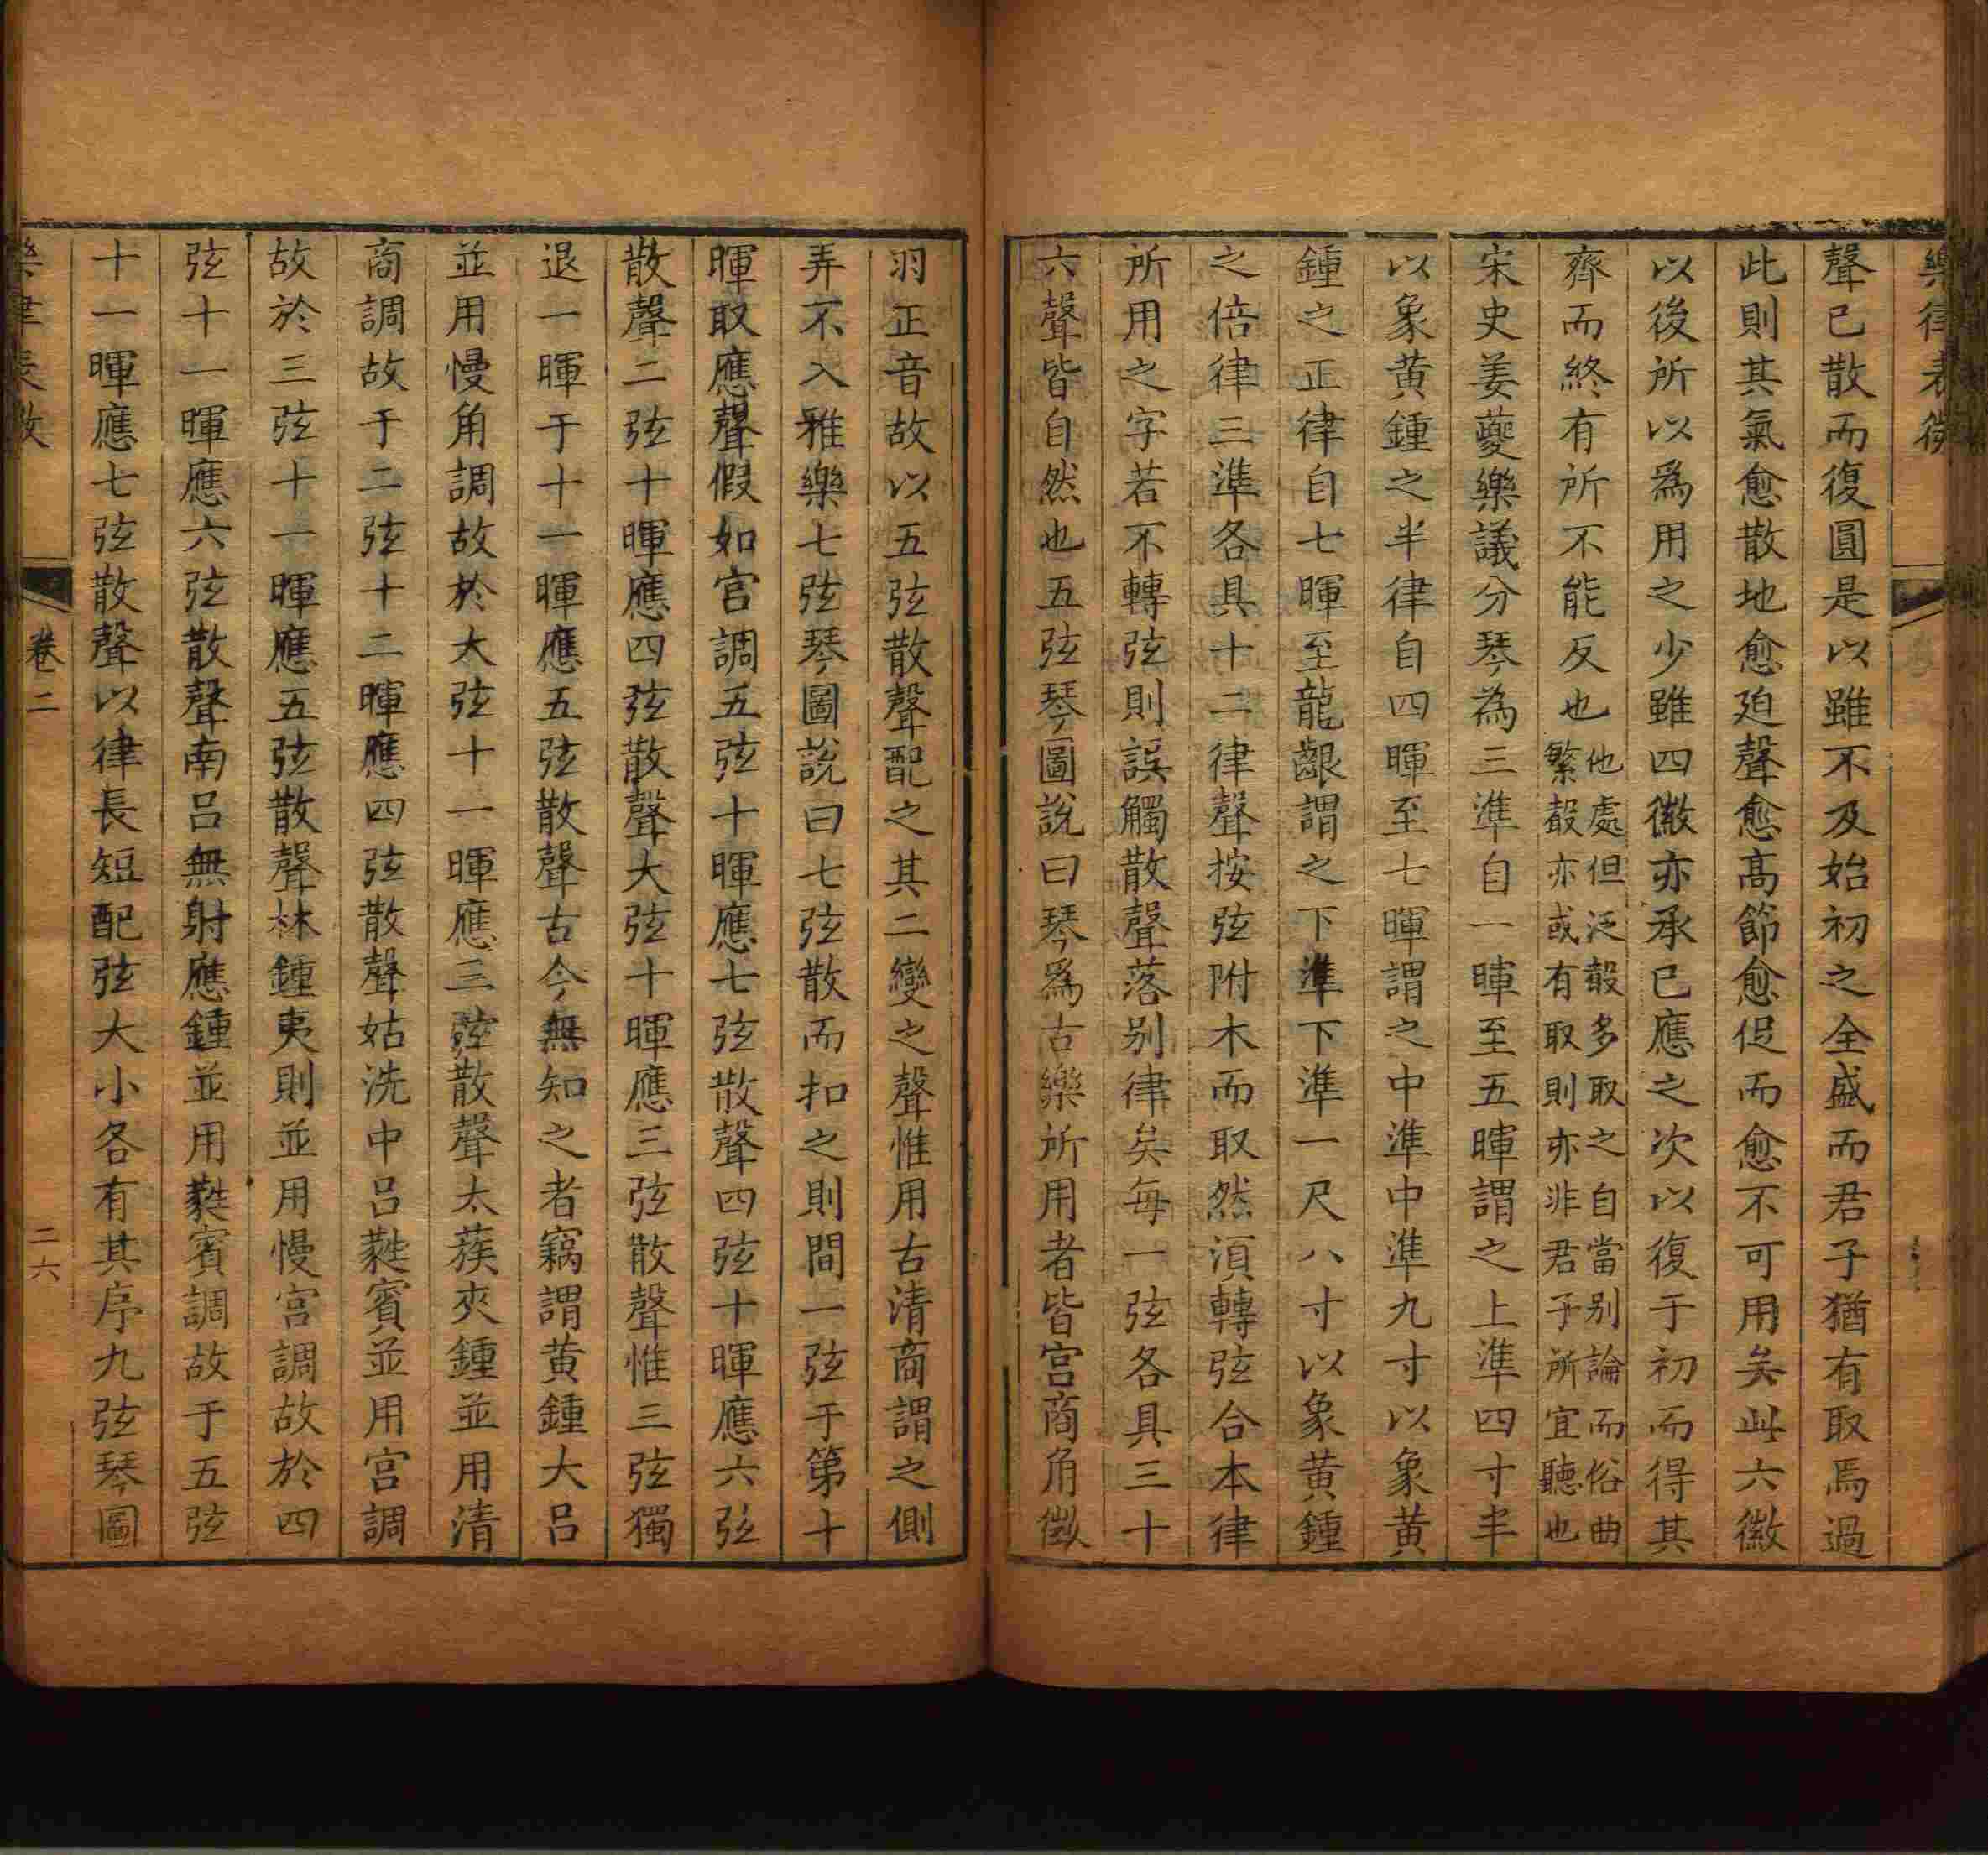 樂律表微
聲已散而復圓是以雖不及始初之全盛而君子猶有取焉過
此則其氣愈散地愈廹聲愈髙節愈促而愈不可用矣此六徽
以後所以爲用之少雖四徽亦承已應之次以復于初而得其
齊而終有所不能反也他處但泛聲多取之自當别論而俗曲
繁聲亦或有取則亦非君子所宜聽也
宋史姜夔樂議分琴為三準自一暉至五暉謂之上準四寸半
以象黄鍾之半律自四暉至七暉謂之中準中準九寸以象黄
鍾之正律自七暉至龍齦謂之下準下準一尺八寸以象黄鍾
之倍律三準各具十二律聲按弦附木而取然湏轉弦合本律
所用之字若不轉弦則誤觸散聲落别律矣每一弦各具三十
六聲皆自然也五弦琴圖說曰琴爲古樂所用者皆宫商角徵
羽正音故以五弦散聲配之其二變之聲惟用古清商謂之側
弄不入雅樂七弦琴圖說曰七弦散而扣之則間一弦于第十
暉取應聲假如宫調五弦十暉應七弦散聲四弦十暉應六弦
散聲二弦十暉應四弦散聲大弦十暉應三弦散聲惟三弦獨
退一暉于十一暉應五弦散聲古今無知之者竊謂黄鍾大吕
並用慢角調故於大弦十一暉應三弦散聲太蔟夾鍾並用清
商調故于二弦十二暉應四弦散聲姑洗中吕蕤賓並用宫調
故於三弦十一暉應五弦散聲林鍾夷則並用慢宫調故於四
弦十一暉應六弦散聲南吕無射應鍾並用蕤賓調故于五弦
十一暉應七弦散聲以律長短配弦大小各有其序九弦琴圖
卷二
二六